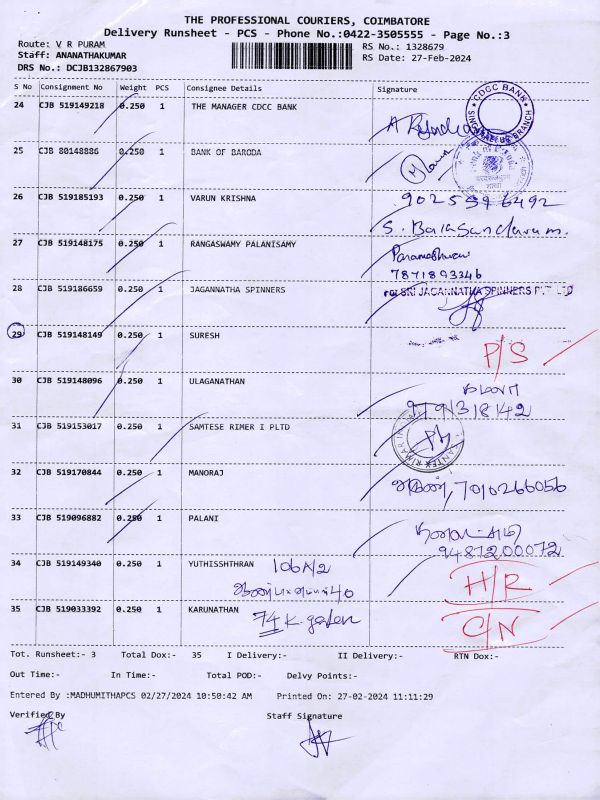 THE PROFESSIONAL COURIERS, COIMBATORE
Delivery Runsheet - PCS - Phone No.:0422-3505555 - Page No.:3
Route: V R PURAM
RS No.: 1328679
Staff: ANANATHAKUMAR
RS Date: 27-Feb-2024
DRS No.: DCJB132867903
S No Consignment No Weight PCS Consignee Details Signature
24 CJB 519149218 0.250 1 THE MANAGER CDCC BANK
CDCC BANK
25 CJB 80148886 0.250 1 BANK OF BARODA
26 CJB 519185193 0.250 1 VARUN KRISHNA 9025396492
S. Balasundaram.
27 CJB 519148175 0.250 1 RANGASWAMY PALANISAMY
7871893346
28 CJB 519186659 0.250 1 JAGANNATHA SPINNERS
For SRI JAGANNATHA SPINNERS PVT LTD
29 CJB 519148149 0.250 1 SURESH P/S
30 CJB 519148096 0.250 1 ULAGANATHAN
9791318142
31 CJB 519153017 0.250 1 SAMTESE RIMER I PLTD
32 CJB 519170844 0.250 1 MANORAJ 7010266056
33 CJB 519096882 0.250 1 PALANI
9487200072
34 CJB 519149340 0.250 1 YUTHISSHTHRAN 106A/2 H/R
35 CJB 519033392 0.250 1 KARUNATHAN 74 K. garden C/N
Tot. Runsheet:- 3 Total Dox:- 35 I Delivery:- II Delivery:- RTN Dox:-
Out Time:- In Time:- Total POD:- Delvy Points:-
Entered By :MADHUMITHAPCS 02/27/2024 10:50:42 AM Printed On: 27-02-2024 11:11:29
Verified By Staff Signature